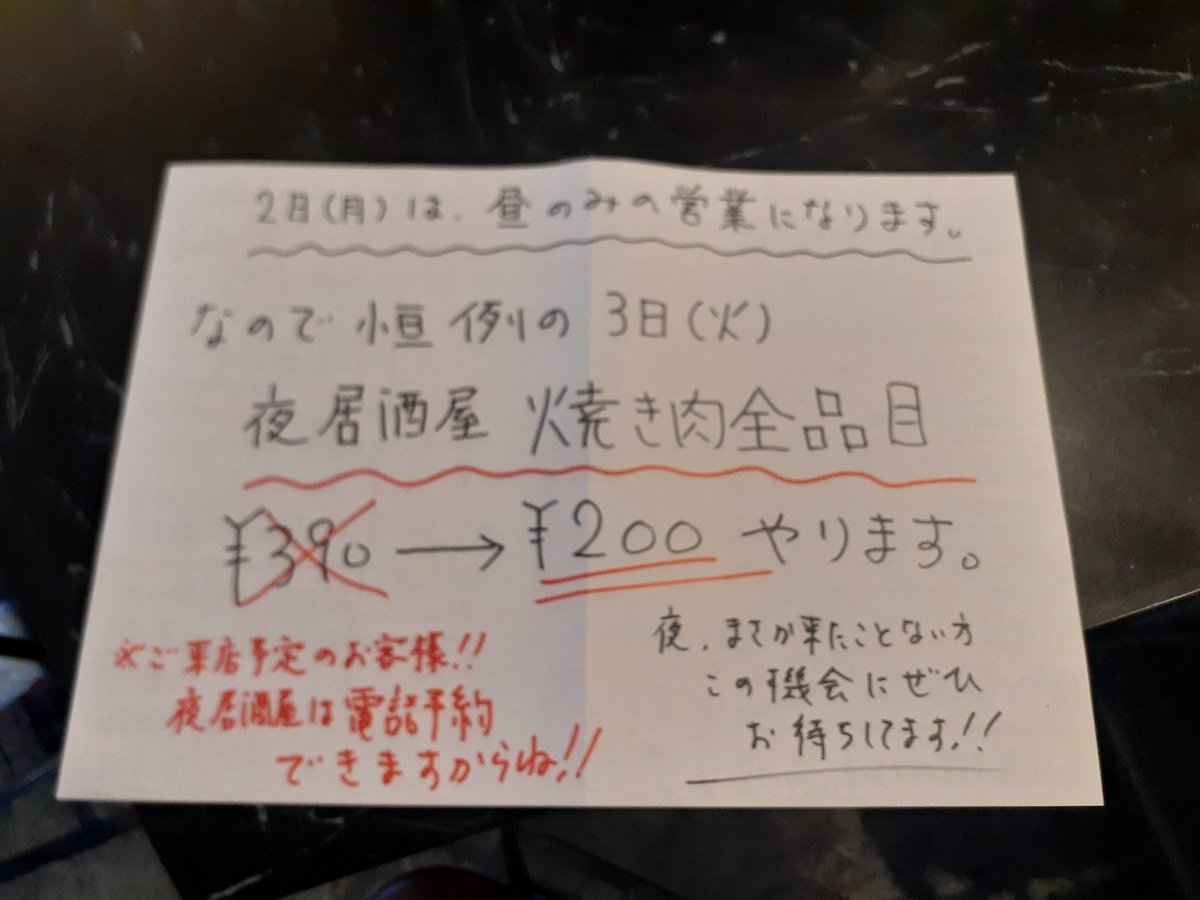 2日(月)は、昼のみの営業になります。
なので恒例の 3日(火)
夜居酒屋 焼き肉全品目
¥390→¥200 やります。
※ご来店予定のお客様!!
夜居酒屋は電話予約
できますからね!!
夜、まだ来たことない方
この機会にぜひ
お待ちしてます!!